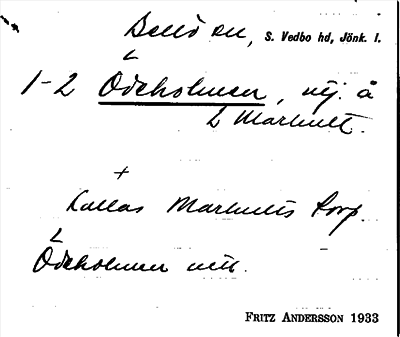 Bellö sn, S. Vedbo hd, Jönk. l.
1-2 Ödeholmen, vej. å
L Marhult.
+
Kallas Marhults torp.
Ödeholmen
FRITZ ANDERSSON 1933